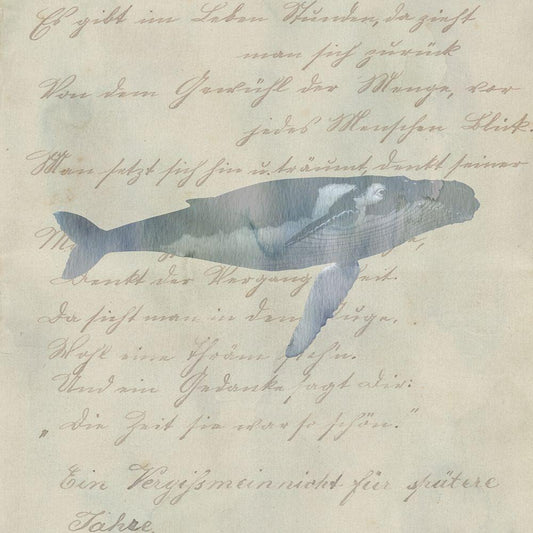 Es gibt im Leben Stunden, da zieht
man sich zurück
Von dem Gewühl der Menge, vor
jedes Menschen Blick.
Man setzt sich hin u. träumt, denkt seiner
Denkt der Vergang eit.
Da sieht man in den
Wohl eine Thrän
Und ein Gedanke sagt dir:
„Die Zeit sie war so schön."
Ein Vergißmeinnicht für spätere
Jahre.